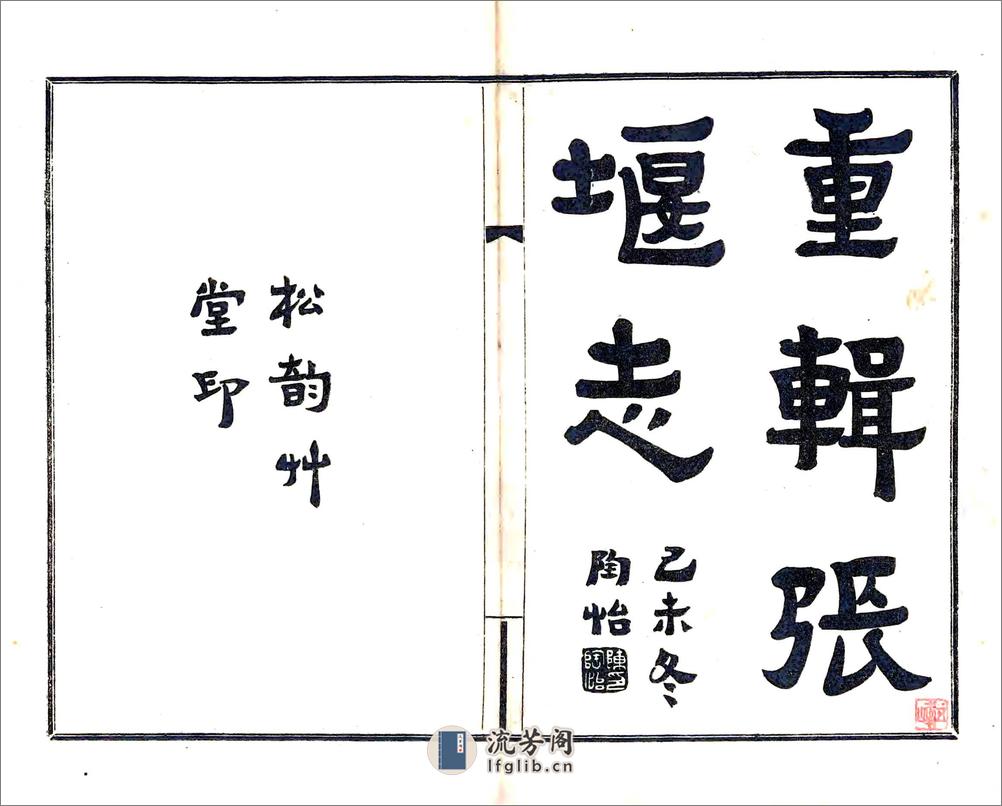 重輯張
堰志
己未冬
陶怡
陳陶怡印
松韵艸
堂印
流芳阁
lfglib.cn